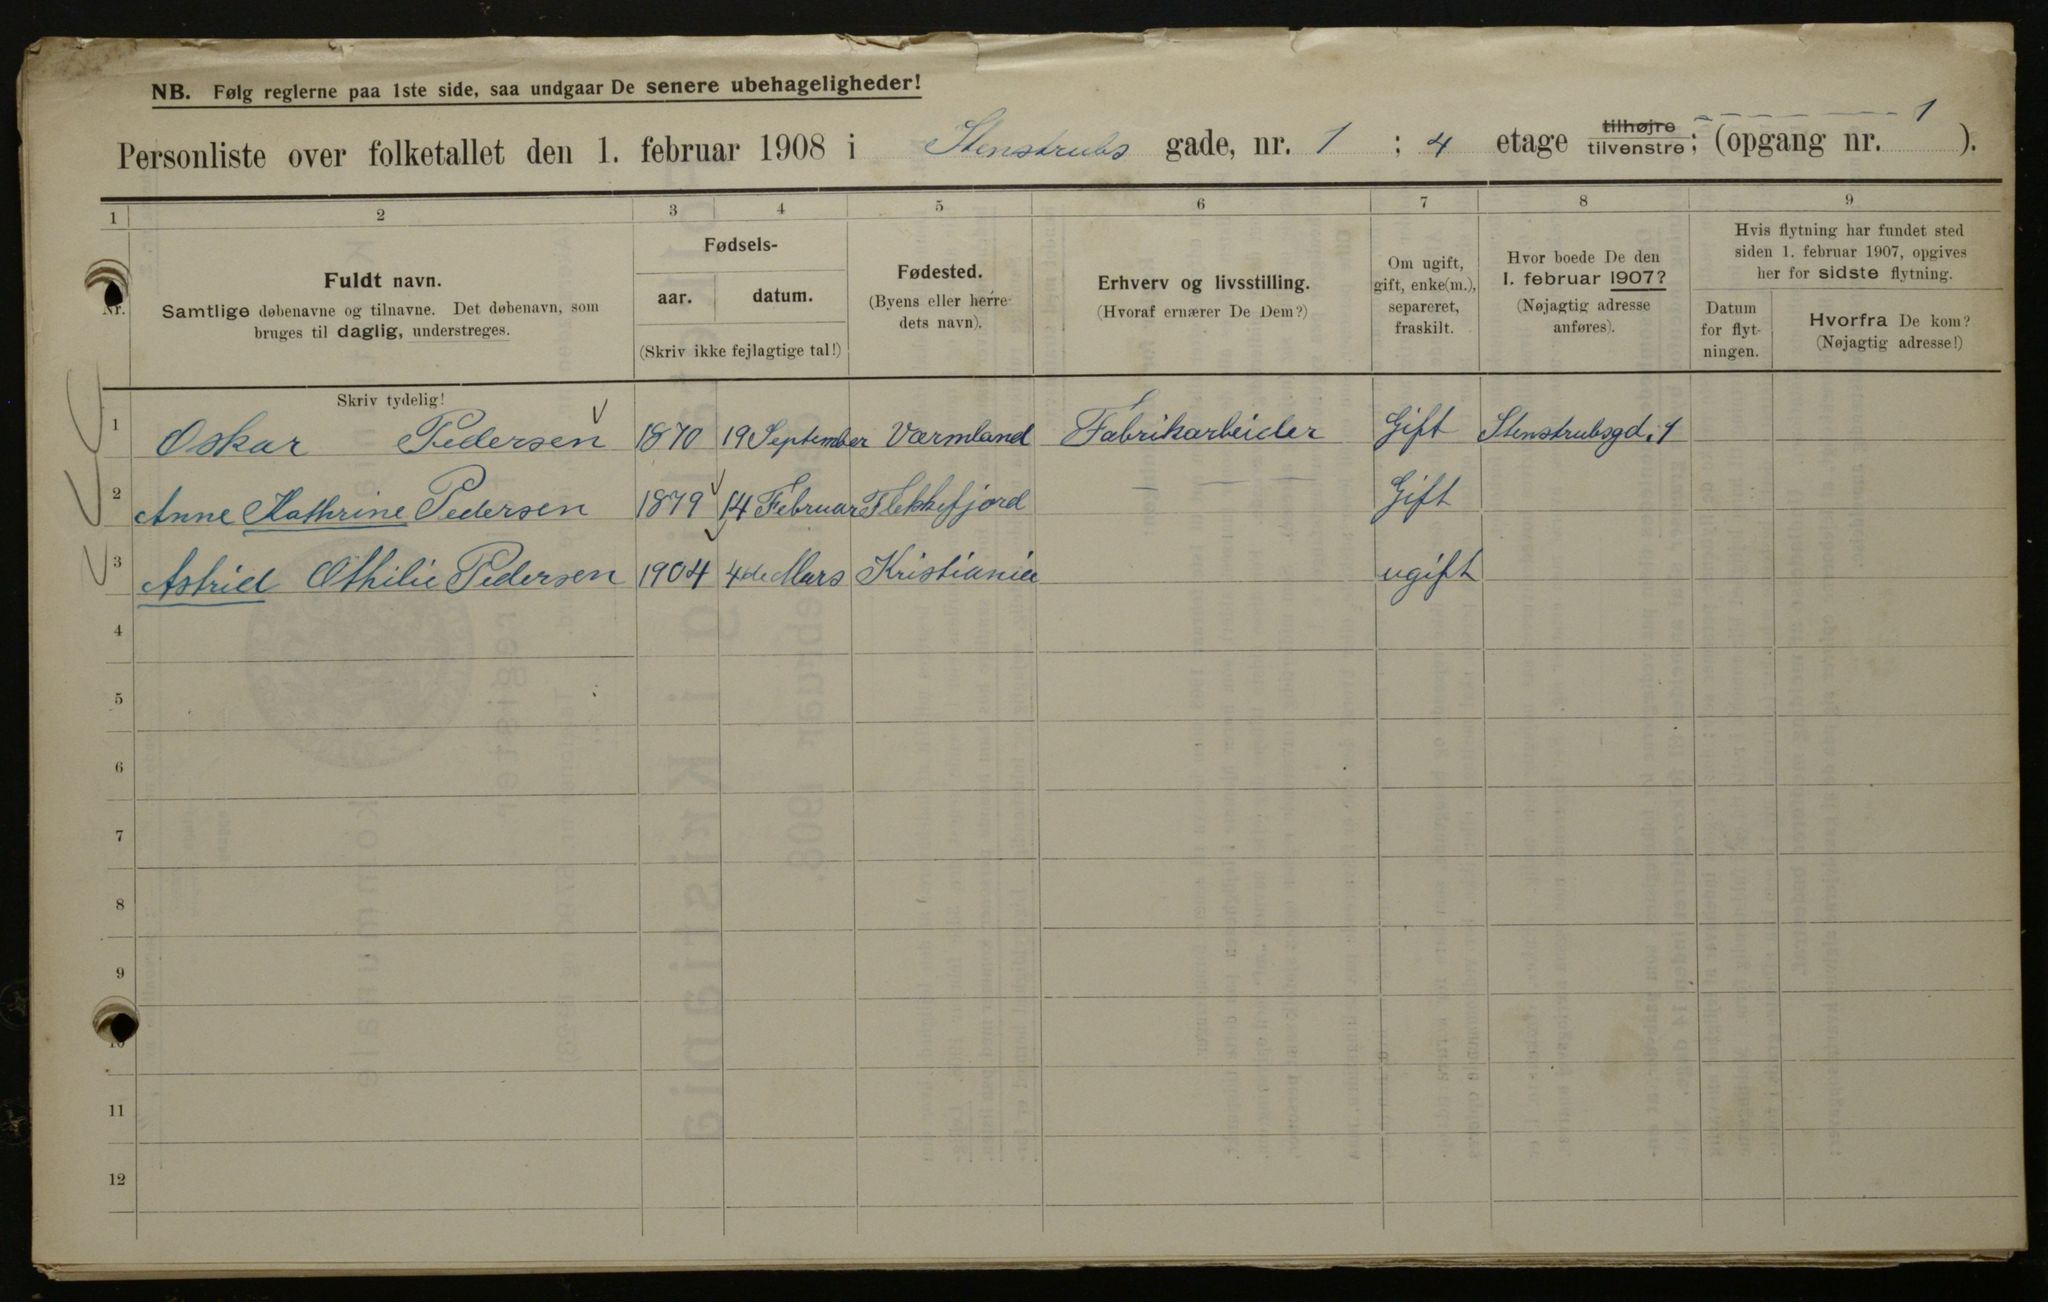 NB. Følg reglerne paa 1ste side, saa undgaar De senere ubehageligheder!
Personliste over folketallet den 1. februar 1908 i Stenstrubs gade, nr. 1 ; 4 etage tilhøjre tilvenstre ; (opgang nr. 1 ).
1 2 3 4 5 6 7 8 9
Nr.
Fuldt navn.
Samtlige døbenavne og tilnavne. Det døbenavn, som
bruges til daglig, understreges.
Fødsels-
aar. datum.
(Skriv ikke fejlagtige tal!)
Fødested.
(Byens eller herre-
dets navn).
Erhverv og livsstilling.
(Hvoraf ernærer De Dem?)
Om ugift,
gift, enke(m.),
separeret,
fraskilt.
Hvor boede De den
1. februar 1907?
(Nøjagtig adresse
anføres).
Hvis flytning har fundet sted
siden 1. februar 1907, opgives
her for sidste flytning.
Datum
for flyt-
ningen.
Hvorfra De kom?
(Nøjagtig adresse!)
Skriv tydelig!
1 Oskar Pedersen 1870 19 September Værmland Fabrikarbeider Gift Stenstrubsgd. 1
2 Anne Kathrine Pedersen 1879 14 Februar Flekkefjord Gift
3 Astrid Othilie Pedersen 1904 4de Mars Kristiania ugift
4
5
6
7
8
9
10
11
12